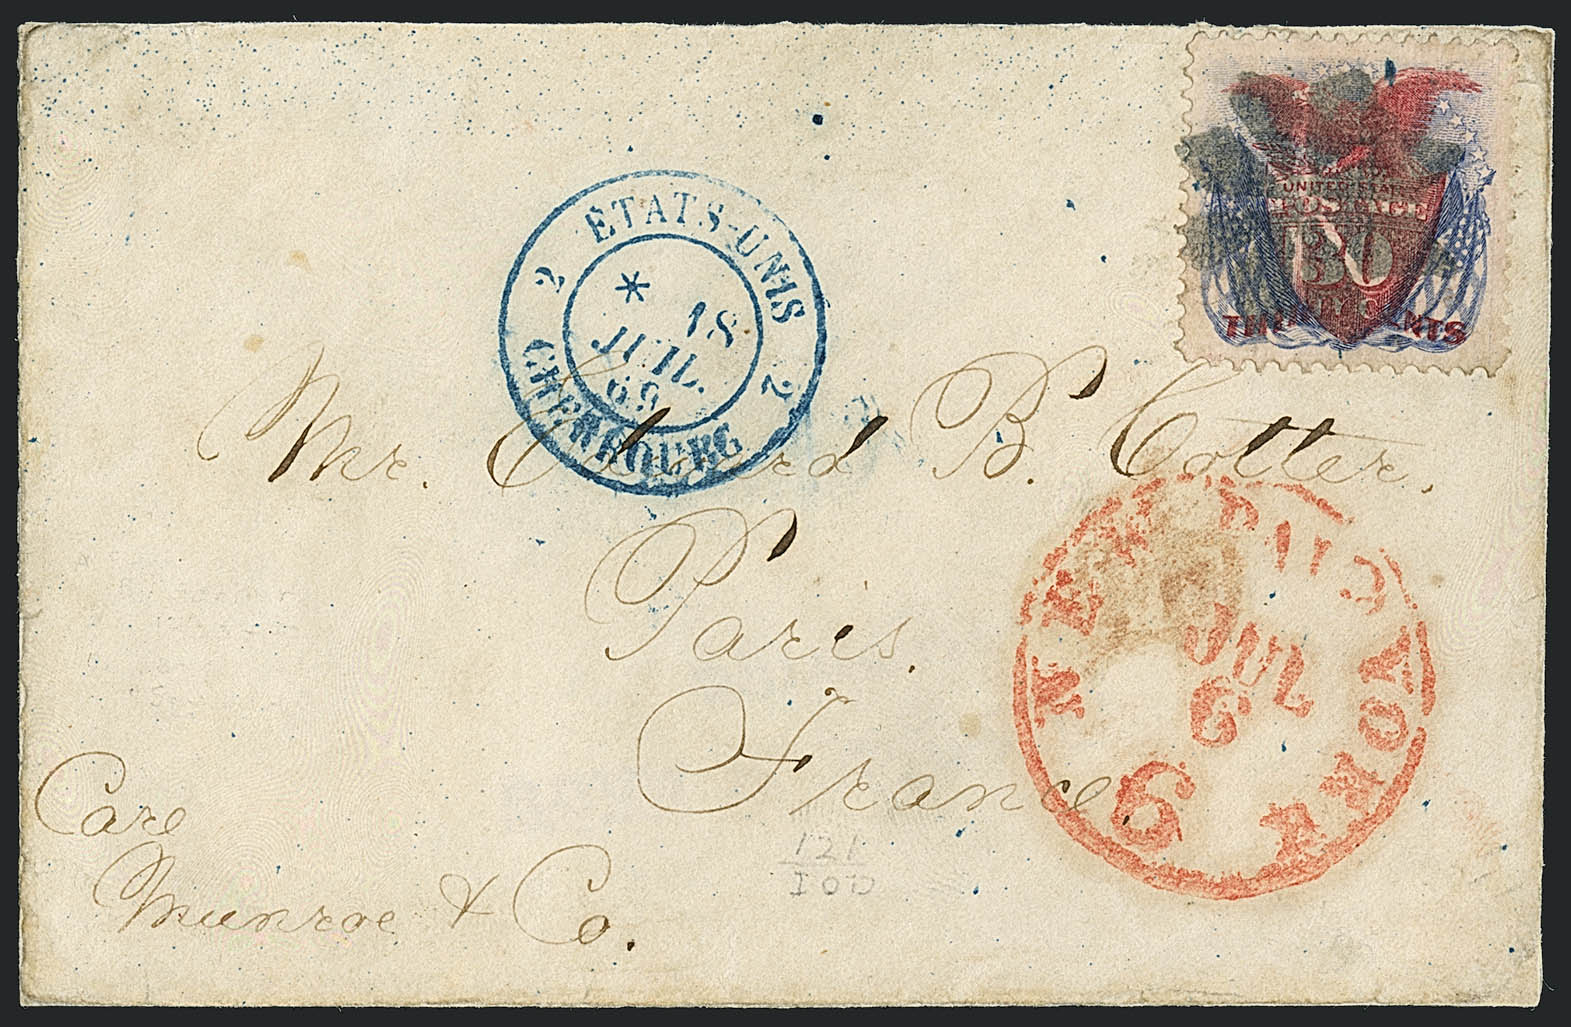 UNITED STATES
POSTAGE
30
CENTS
2 ÉTATS-UNIS 2
*
18
JUIL.
69
CHERBOURG
Mr. Edward B. Cotter.
Paris.
France.
Care
Munroe & Co.
NEW PAID YORK
JUL
6
6
121